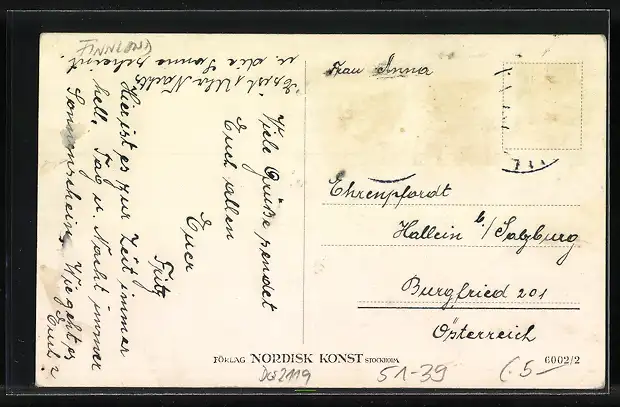 FINNLAND
Es ist 1 Uhr Nachts
u. die Sonne scheint.
Hier ist es zur Zeit immer
hell, Tag u. Nacht immer
Sonnenschein. Wie geht es
Euch?
Viele Grüße sendet
Euch allen
Euer
Fritz
Frau Anna
Ehrenpfordt
Hallein b./Salzburg
Burgfried 201
Österreich
FÖRLAG NORDISK KONST STOCKHOLM
6002/2
51-39